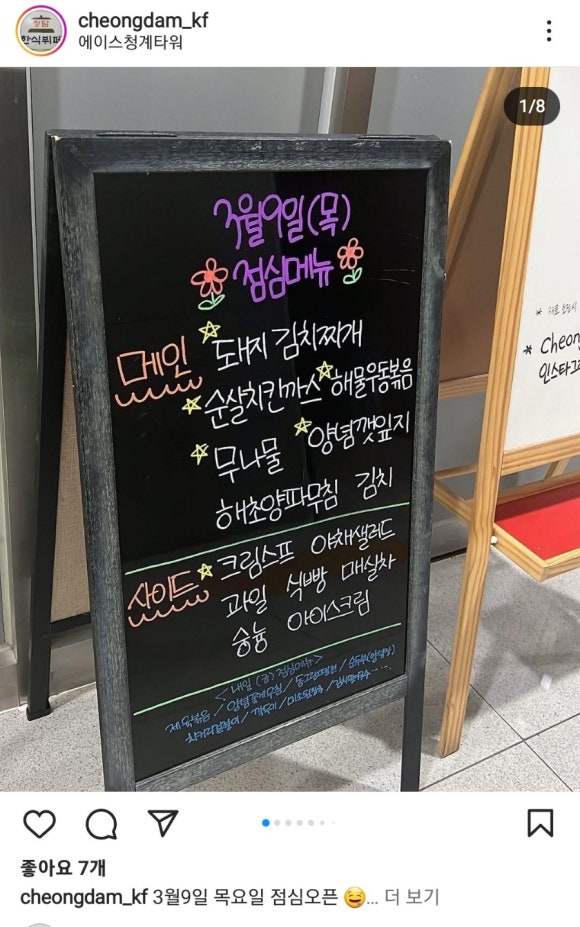 cheongdam_kf
에이스청계타워
청담
한식뷔페
1/8
3월9일(목)
점심메뉴
메인
돼지 김치찌개
순살치킨까스 해물우동볶음
무나물 양념깻잎지
해초양파무침 김치
사이드
크림스프 야채샐러드
과일 식빵 매실차
숭늉 아이스크림
<내일(금) 점심메뉴>
제육볶음 / 양념꽃게무침 /
* Cheon
인스타그
좋아요 7개
cheongdam_kf 3월9일 목요일 점심오픈 🤤... 더 보기